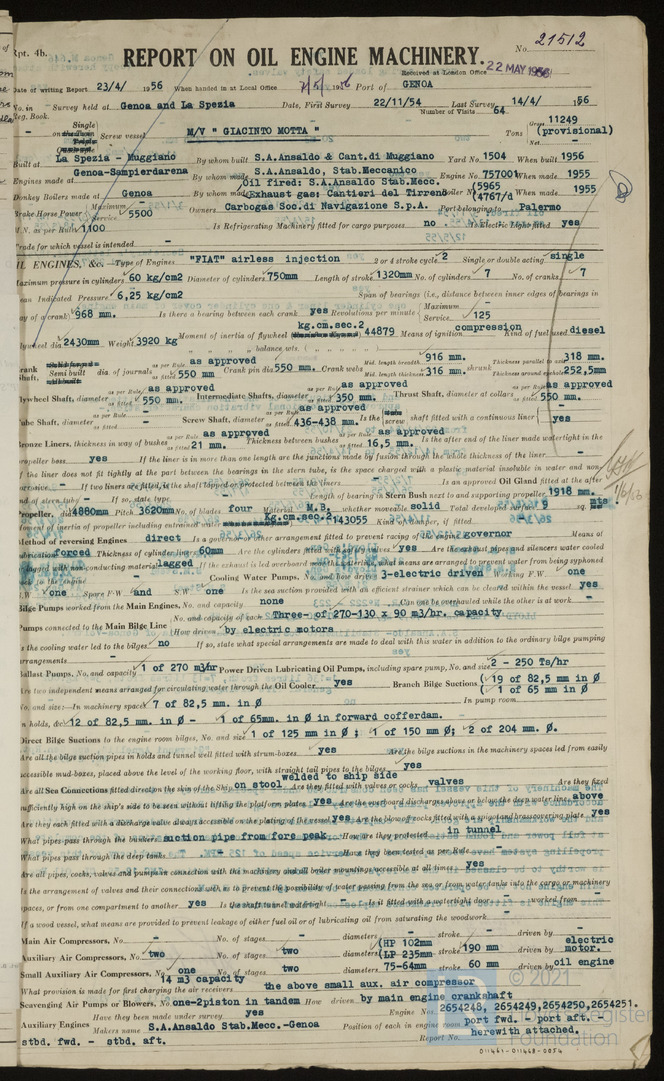 Rpt. 4b.
REPORT ON OIL ENGINE MACHINERY.
No. 21512
Received at London Office 22 MAY 1956
Date of writing Report 23/4/ 1956 When handed in at Local Office 1956 Port of GENOA
No. in Survey held at Genoa and La Spezia Date, First Survey 22/11/54 Last Survey 14/4/ 1956
Reg. Book. Number of Visits 64
Single on Screw vessel M/V " GIACINTO MOTTA " Tons Gross 11249 (provisional) Net -
Built at La Spezia - Muggiano By whom built S.A.Ansaldo & Cant.di Muggiano Yard No. 1504 When built 1956
Engines made at Genoa-Sampierdarena By whom made S.A.Ansaldo, Stab.Meccanico Engine No. 757001 When made 1955
Donkey Boilers made at Genoa By whom made Oil fired: S.A.Ansaldo Stab.Meco Exhaust gas: Cantieri del Tirreno Boiler No. 5965 4767/d When made 1955
Brake Horse Power Maximum - Service 5500 Owners Carbogas Soc.di Navigazione S.p.A. Port belonging to Palermo
M.N. as per Rule 1100 Is Refrigerating Machinery fitted for cargo purposes no Is Electric Light fitted yes
Trade for which vessel is intended -
OIL ENGINES, &c. Type of Engines "FIAT" airless injection 2 or 4 stroke cycle 2 Single or double acting single
Maximum pressure in cylinders 60 kg/cm2 Diameter of cylinders 750mm Length of stroke 1320mm No. of cylinders 7 No. of cranks 7
Mean Indicated Pressure 6,25 kg/cm2 Span of bearings (i.e., distance between inner edges of bearings in
way of a crank) 968 mm. Is there a bearing between each crank yes Revolutions per minute Maximum - Service 125
Flywheel dia 2430mm Weight 3920 kg Moment of inertia of flywheel kg.cm.sec.2 44879 Means of ignition compression Kind of fuel used diesel
" " " balance wts.
Crank Shaft, Semi built dia of journals as per Rule as approved as fitted 550 mm Crank pin dia 550 mm. Crank webs Mid. length breadth 916 mm. Mid. length thickness 316 mm. shrunk Thickness parallel to axis 318 mm. Thickness around eyehole 252,5mm
Flywheel Shaft, diameter as per Rule as approved as fitted 550 mm. Intermediate Shafts, diameter as per Rule as approved as fitted 350 mm. Thrust Shaft, diameter at collars as per Rule as approved as fitted 550 mm.
Tube Shaft, diameter as per Rule - as fitted - Screw Shaft, diameter as per Rule as approved as fitted 436-438 mm. Is the screw shaft fitted with a continuous liner yes
Bronze Liners, thickness in way of bushes as per Rule as approved as fitted 21 mm. Thickness between bushes as per Rule as approved as fitted 16,5 mm. Is the after end of the liner made watertight in the
propeller boss yes If the liner is in more than one length are the junctions made by fusion through the whole thickness of the liner -
If the liner does not fit tightly at the part between the bearings in the stern tube, is the space charged with a plastic material insoluble in water and non-
corrosive - If two liners are fitted, is the shaft lapped or protected between the liners - Is an approved Oil Gland fitted at the after
end of stern tube - If so, state type - Length of bearing in Stern Bush next to and supporting propeller 1918 mm.
Propeller, dia 4880mm Pitch 3620mm No. of blades four Material M.B. whether moveable solid Total developed surface 9 sq. mts
Moment of inertia of propeller including entrained water kg.cm.sec.2 143055 Kind of damper, if fitted -
Method of reversing Engines direct Is a governor or other arrangement fitted to prevent racing of the engine governor Means of
lubrication forced Thickness of cylinder liners 60mm Are the cylinders fitted with safety valves yes Are the exhaust pipes and silencers water cooled
or lagged with non-conducting material lagged If the exhaust is led overboard near the waterline, what means are arranged to prevent water from being syphoned
back to the engine - Cooling Water Pumps, No. and how driven 3-electric driven Working F.W. one
S.W. one Spare F.W. and S.W. one Is the sea suction provided with an efficient strainer which can be cleared within the vessel yes
Bilge Pumps worked from the Main Engines, No. and capacity none Can one be overhauled while the other is at work -
Pumps connected to the Main Bilge Line No. and capacity of each Three- of 270-130 x 90 m3/hr. capacity How driven by electric motors
Is the cooling water led to the bilges no If so, state what special arrangements are made to deal with this water in addition to the ordinary bilge pumping
arrangements -
Ballast Pumps, No. and capacity 1 of 270 m3/hr Power Driven Lubricating Oil Pumps, including spare pump, No. and size 2 - 250 Ts/hr
Are two independent means arranged for circulating water through the Oil Cooler yes Branch Bilge Suctions 19 of 82,5 mm in Ø 1 of 65 mm in Ø
No. and size:-In machinery spaces 7 of 82,5 mm. in Ø In pump room -
In holds, &c 12 of 82,5 mm. in Ø - 1 of 65mm. in Ø in forward cofferdam.
Direct Bilge Suctions to the engine room bilges, No. and size 1 of 125 mm in Ø ; 1 of 150 mm Ø; 2 of 204 mm. Ø.
Are all the bilge suction pipes in holds and tunnel well fitted with strum-boxes yes Are the bilge suctions in the machinery spaces led from easily
accessible mud-boxes, placed above the level of the working floor, with straight tail pipes to the bilges yes
Are all Sea Connections fitted direct on the skin of the ship on stool welded to ship side Are they fitted with valves or cocks valves Are they fixed
sufficiently high on the ship's side to be seen without lifting the platform plates yes Are the overboard discharges above or below the deep water line above
Are they each fitted with a discharge valve always accessible on the plating of the vessel yes Are the blowing cocks fitted with a spigot and brass covering plate yes
What pipes pass through the bunkers suction pipe from fore peak How are they protected in tunnel
What pipes pass through the deep tanks - Have they been tested as per Rule -
Are all pipes, cocks, valves and pumps in connection with the machinery and all boiler mountings accessible at all times yes
Is the arrangement of valves and their connections such as to prevent the possibility of water passing from the sea or from water tanks into the cargo or machinery
spaces, or from one compartment to another yes Is the shaft tunnel watertight - Is it fitted with a watertight door - worked from -
If a wood vessel, what means are provided to prevent leakage of either fuel oil or of lubricating oil from saturating the woodwork -
Main Air Compressors, No. - No. of stages - diameters - stroke - driven by -
Auxiliary Air Compressors, No. two No. of stages two diameters (HP 102mm (LP 235mm stroke 190 mm driven by electric motor.
Small Auxiliary Air Compressors, No. one 14 m3 capacity No. of stages two diameters 75-64mm stroke 60 mm driven by oil engine
What provision is made for first charging the air receivers the above small aux. air compressor
Scavenging Air Pumps or Blowers, No. one-2piston in tandem How driven by main engine crankshaft
Auxiliary Engines Have they been made under survey yes Engine Nos. 2654248, 2654249,2654250,2654251.
Makers name S.A.Ansaldo Stab.Mecc.-Genoa Position of each in engine room port fwd. - port aft. -
stbd. fwd. - stbd. aft. Report No. herewith attached.
© 2021
Lloyd's Register
Foundation
011461-011468-0054